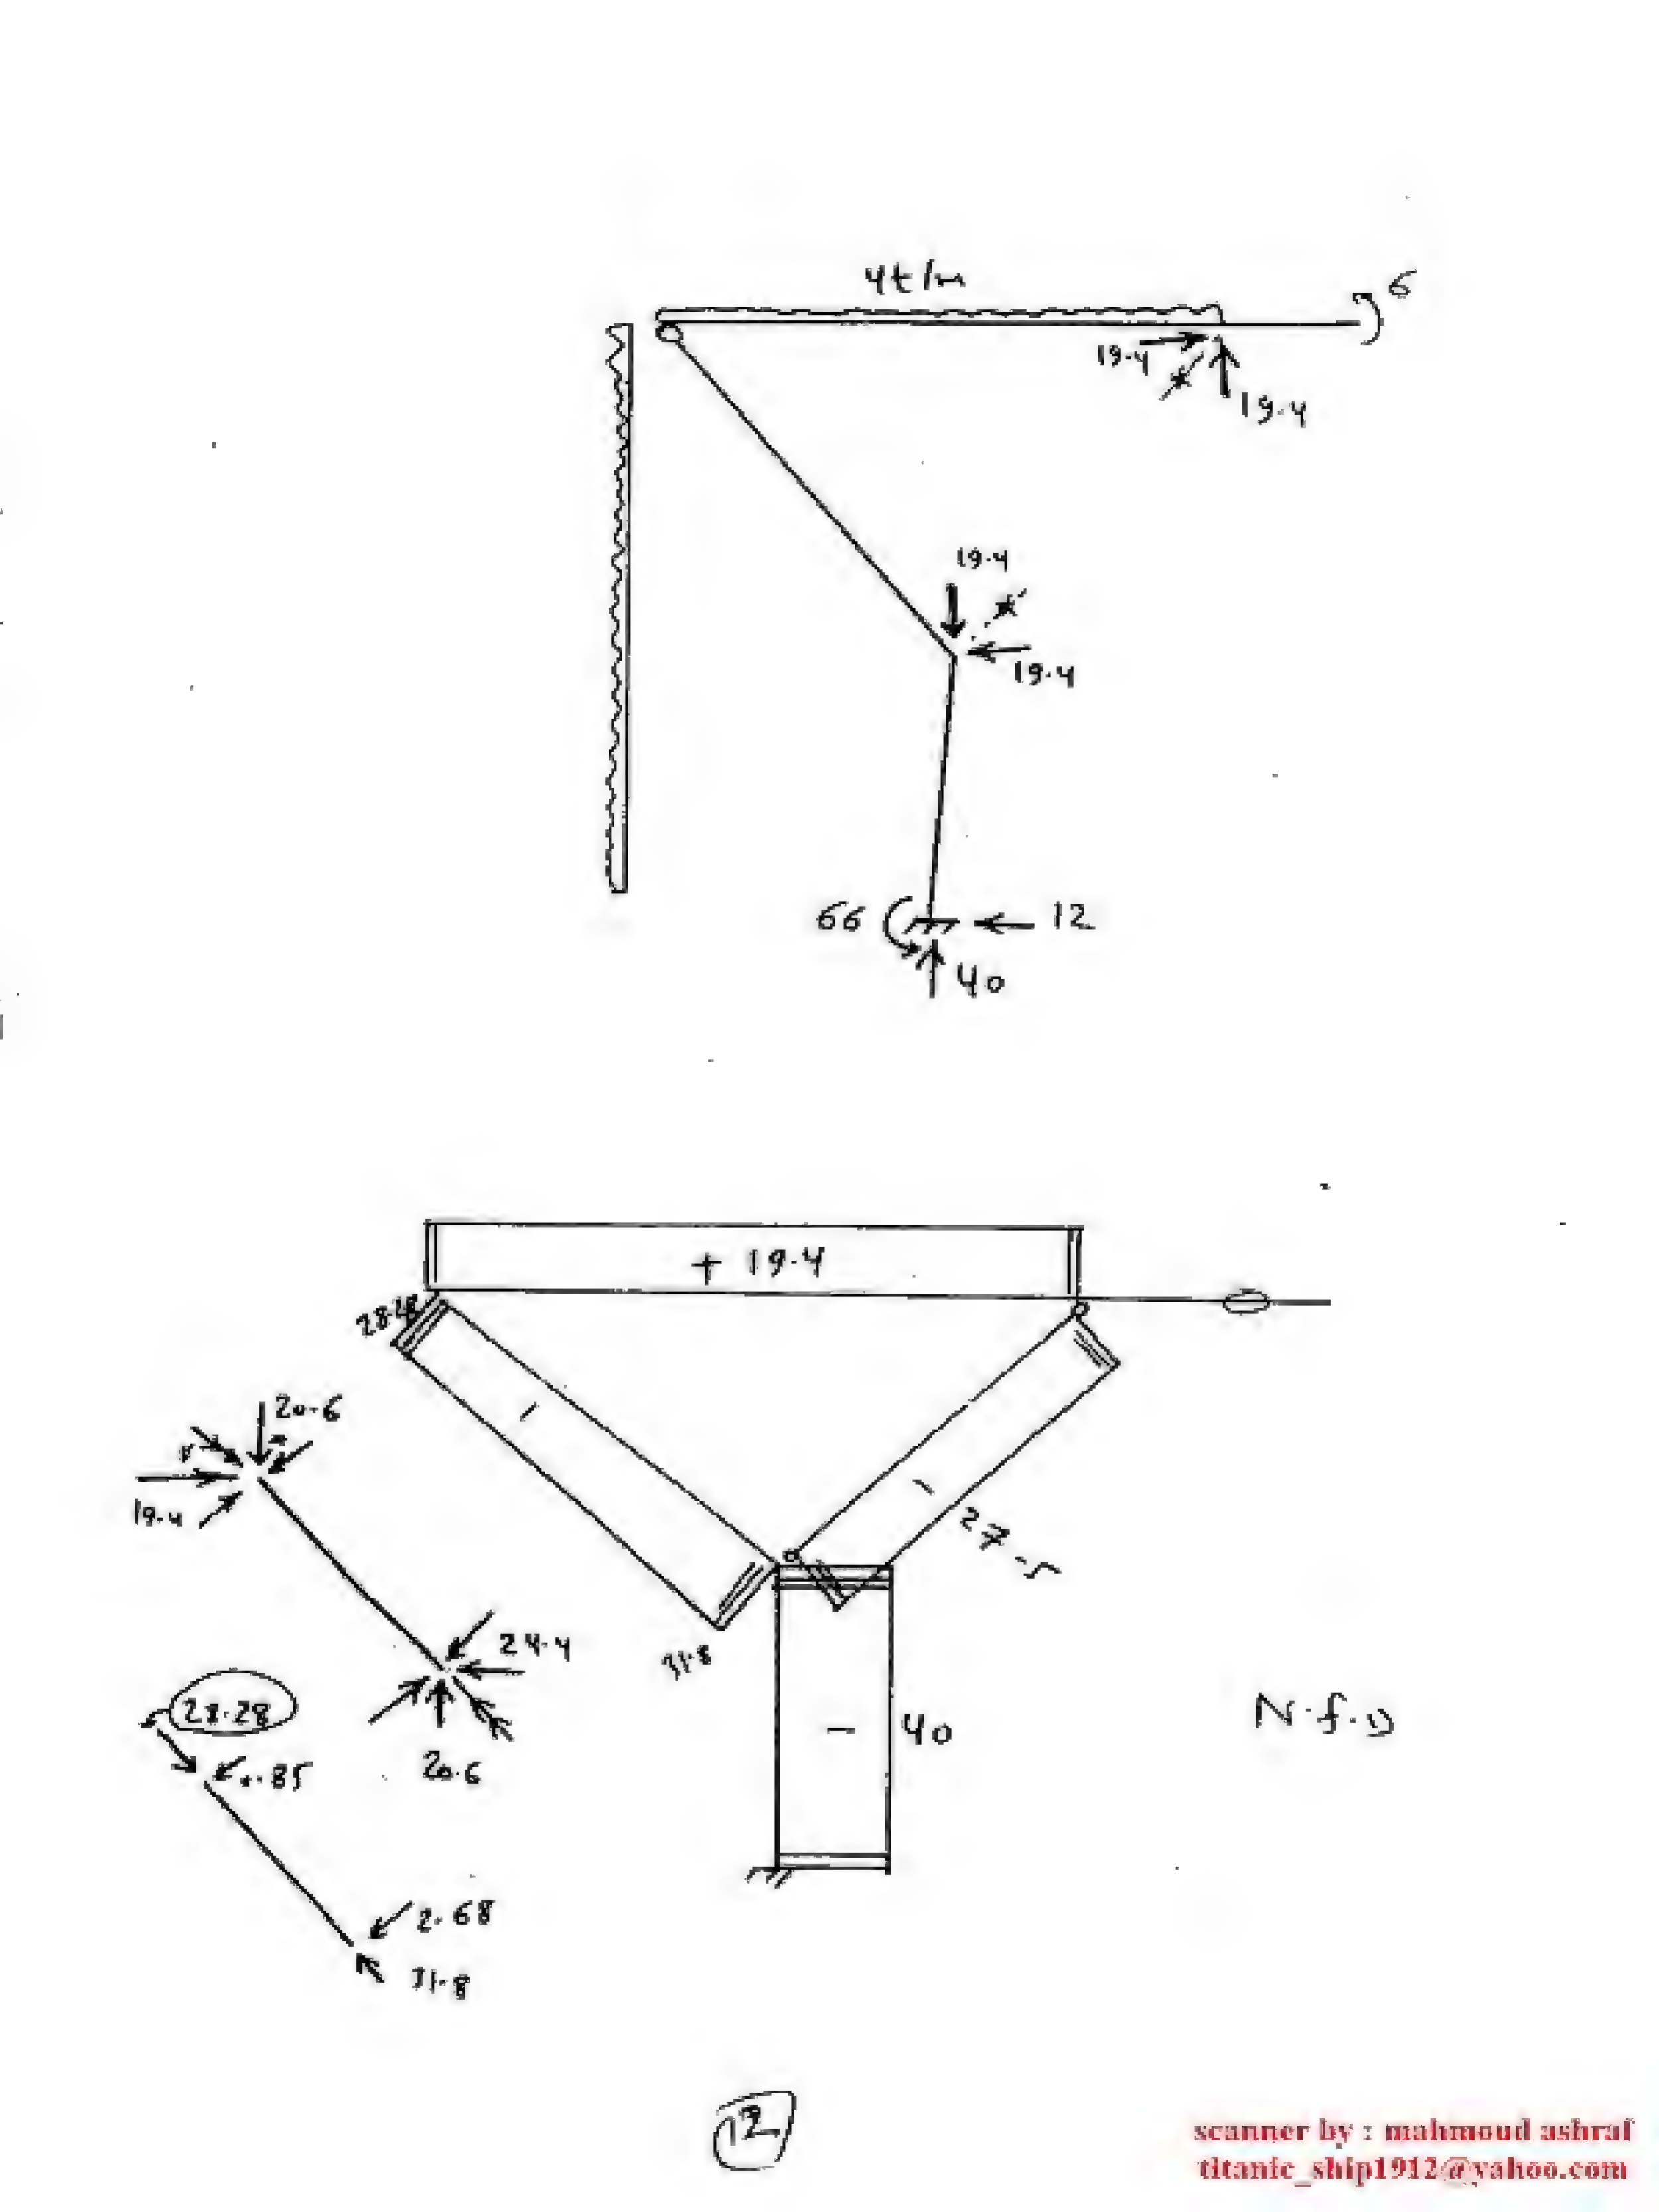 4t/m
6
19.4
19.4
19.4
19.4
66
12
40
+ 19.4
28.28
20.6
-
19.4
-
27.5
24.4
31.8
28.28
- 40
N.f.D
20.6
.85
2.68
31.8
12
scanner by : mahmoud ashraf
titanic_ship1912@yahoo.com